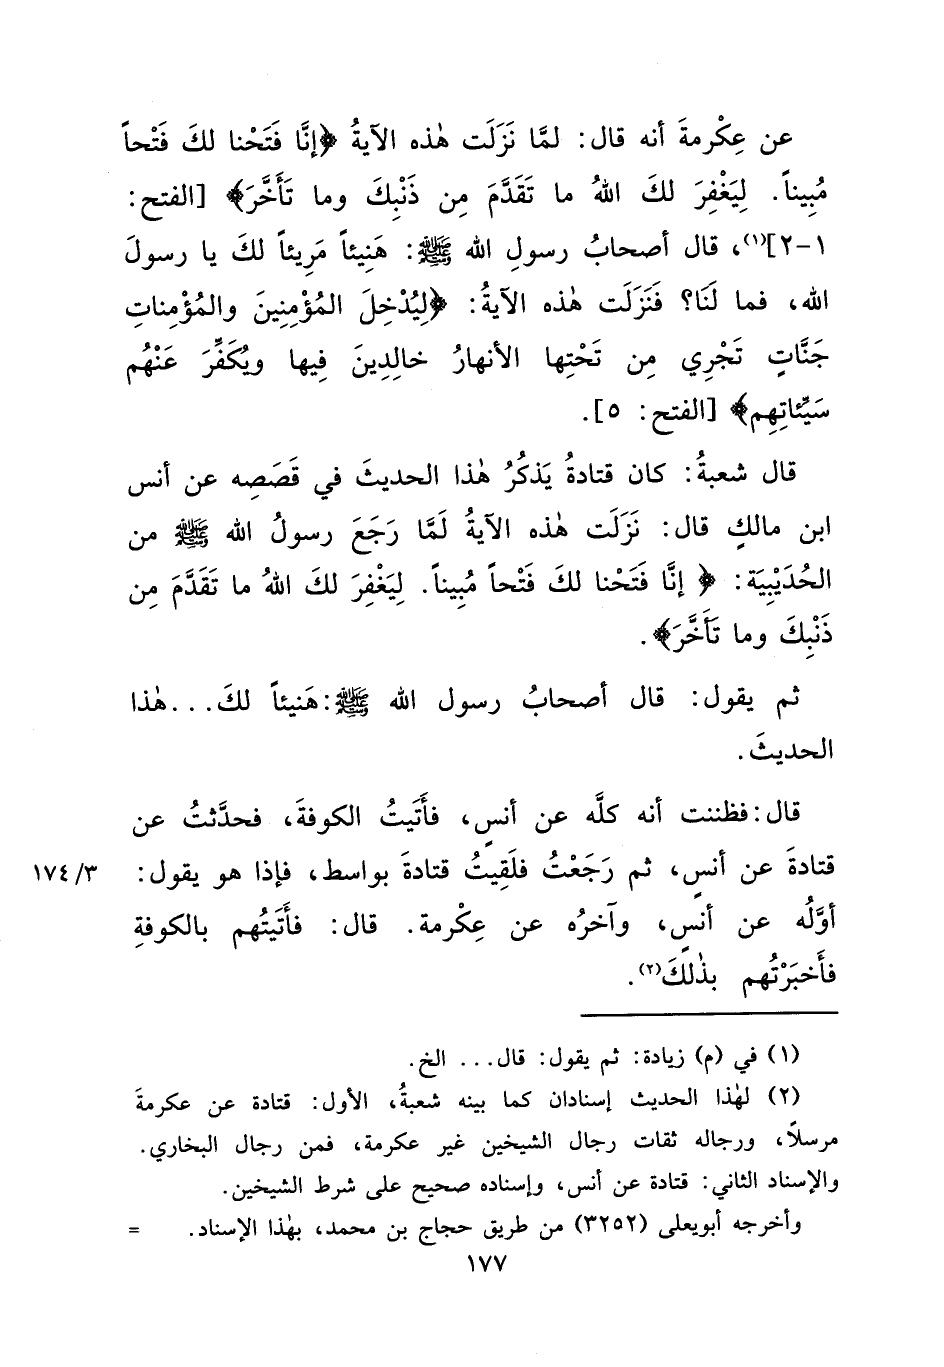 عن عِكْرمةَ أنه قال: لمَّا نَزَلَت هٰذه الآيةُ ﴿إنَّا فَتَحْنا لكَ فَتْحاً
مُبِيناً. لِيَغْفِرَ لكَ اللهُ ما تَقَدَّمَ مِن ذَنْبِكَ وما تَأَخَّرَ﴾ [الفتح:
١-٢](١)، قال أصحابُ رسولِ الله ﷺ: هَنِيئاً مَرِيئاً لكَ يا رسولَ
الله، فما لَنَا؟ فَنَزَلَت هٰذه الآيةُ: ﴿لِيُدْخِلَ المُؤْمِنِينَ والمُؤْمِناتِ
جَنَّاتٍ تَجْرِي مِن تَحْتِها الأنهارُ خالِدِينَ فِيها ويُكَفِّرَ عَنْهُم
سَيِّئاتِهِم﴾ [الفتح: ٥].
قال شعبةُ: كان قتادةُ يَذكُرُ هٰذا الحديثَ في قَصَصِه عن أنس
ابن مالكٍ قال: نَزَلَت هٰذه الآيةُ لَمَّا رَجَعَ رسولُ الله ﷺ من
الحُدَيْبِيَة: ﴿إنَّا فَتَحْنا لكَ فَتْحاً مُبِيناً. لِيَغْفِرَ لكَ اللهُ ما تَقَدَّمَ مِن
ذَنْبِكَ وما تَأَخَّرَ﴾.
ثم يقول: قال أصحابُ رسول الله ﷺ:هَنيئاً لكَ...هٰذا
الحديثَ.
قال:فظننت أنه كلَّه عن أنسٍ، فأَتَيتُ الكوفةَ، فحدَّثتُ عن
قتادةَ عن أنسٍ، ثم رَجَعْتُ فلَقِيتُ قتادةَ بواسط، فإذا هو يقول: ١٧٤/٣
أوَّلُه عن أنسٍ، وآخرُه عن عِكْرمة. قال: فأَتَيتُهم بالكوفةِ
فأَخبَرْتُهم بذٰلكَ(٢).
(١) في (م) زيادة: ثم يقول: قال... الخ.
(٢) لهٰذا الحديث إسنادان كما بينه شعبةُ، الأول: قتادة عن عكرمةَ
مرسلاً، ورجاله ثقات رجال الشيخين غير عكرمة، فمن رجال البخاري.
والإسناد الثاني: قتادة عن أنس، وإسناده صحيح على شرط الشيخين.
وأخرجه أبويعلى (٣٢٥٢) من طريق حجاج بن محمد، بهٰذا الإسناد. =
١٧٧